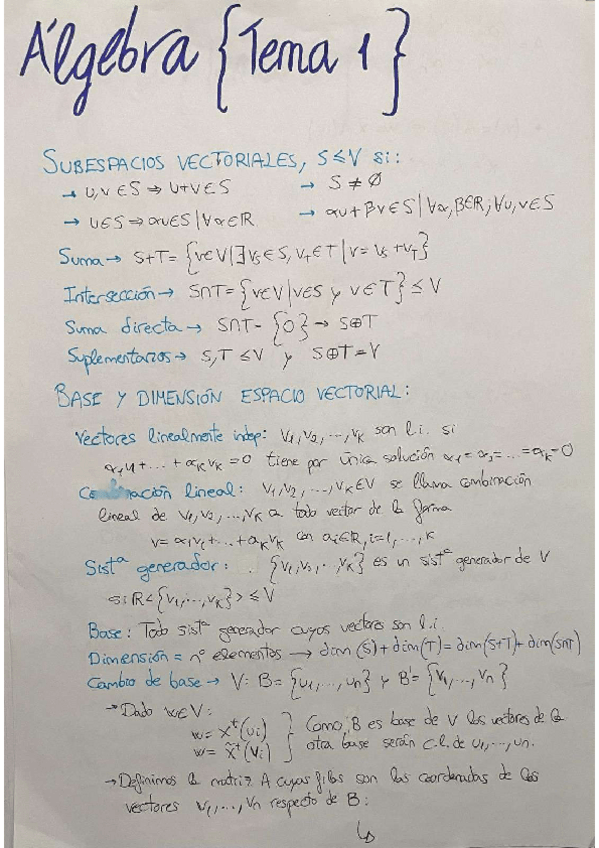 Álgebra {Tema 1}
SUBESPACIOS VECTORIALES, S≤V si:
→ u,v∈S ⇒ u+v∈S → S≠∅
→ u∈S ⇒ αu∈S | ∀α∈R → αu+βv∈S | ∀α,β∈R; ∀u,v∈S
Suma → S+T= {v∈V | ∃ vs∈S, vT∈T | v= vs+vT}
Intersección → S∩T= {v∈V | v∈S y v∈T} ≤ V
Suma directa → S∩T= {0} → S⊕T
Suplementarios → S,T ≤V y S⊕T=V
BASE Y DIMENSIÓN ESPACIO VECTORIAL:
Vectores linealmente indep: v1,v2,...,vk son l.i. si
α1v1+...+αkvk=0 tiene por única solución α1=α2=...=αk=0
Combinación lineal: v1,v2,...,vk∈V se llama combinación
lineal de v1,v2,...,vk a todo vector de la forma
v=α1v1+...+αkvk con αi∈R, i=1,...,k
Sistª generador: {v1,v2,...,vk} es un sistª generador de V
si R<{v1,...,vk}> ≤ V
Base: Todo sistª generador cuyos vectores son l.i.
Dimensión = nº elementos → dim(S)+dim(T)=dim(S+T)+dim(S∩T)
Cambio de base → V: B={u1,...,un} y B'={v1,...,vn}
→ Dado w∈V:
w= X^t(ui) } Como B es base de V los vectores de la
w= X̂^t(vi) } otra base serán c.l. de u1,...,un.
→ Definimos la matriz A cuyas filas son las coordenadas de los
vectores v1,...,vn respecto de B:
↳